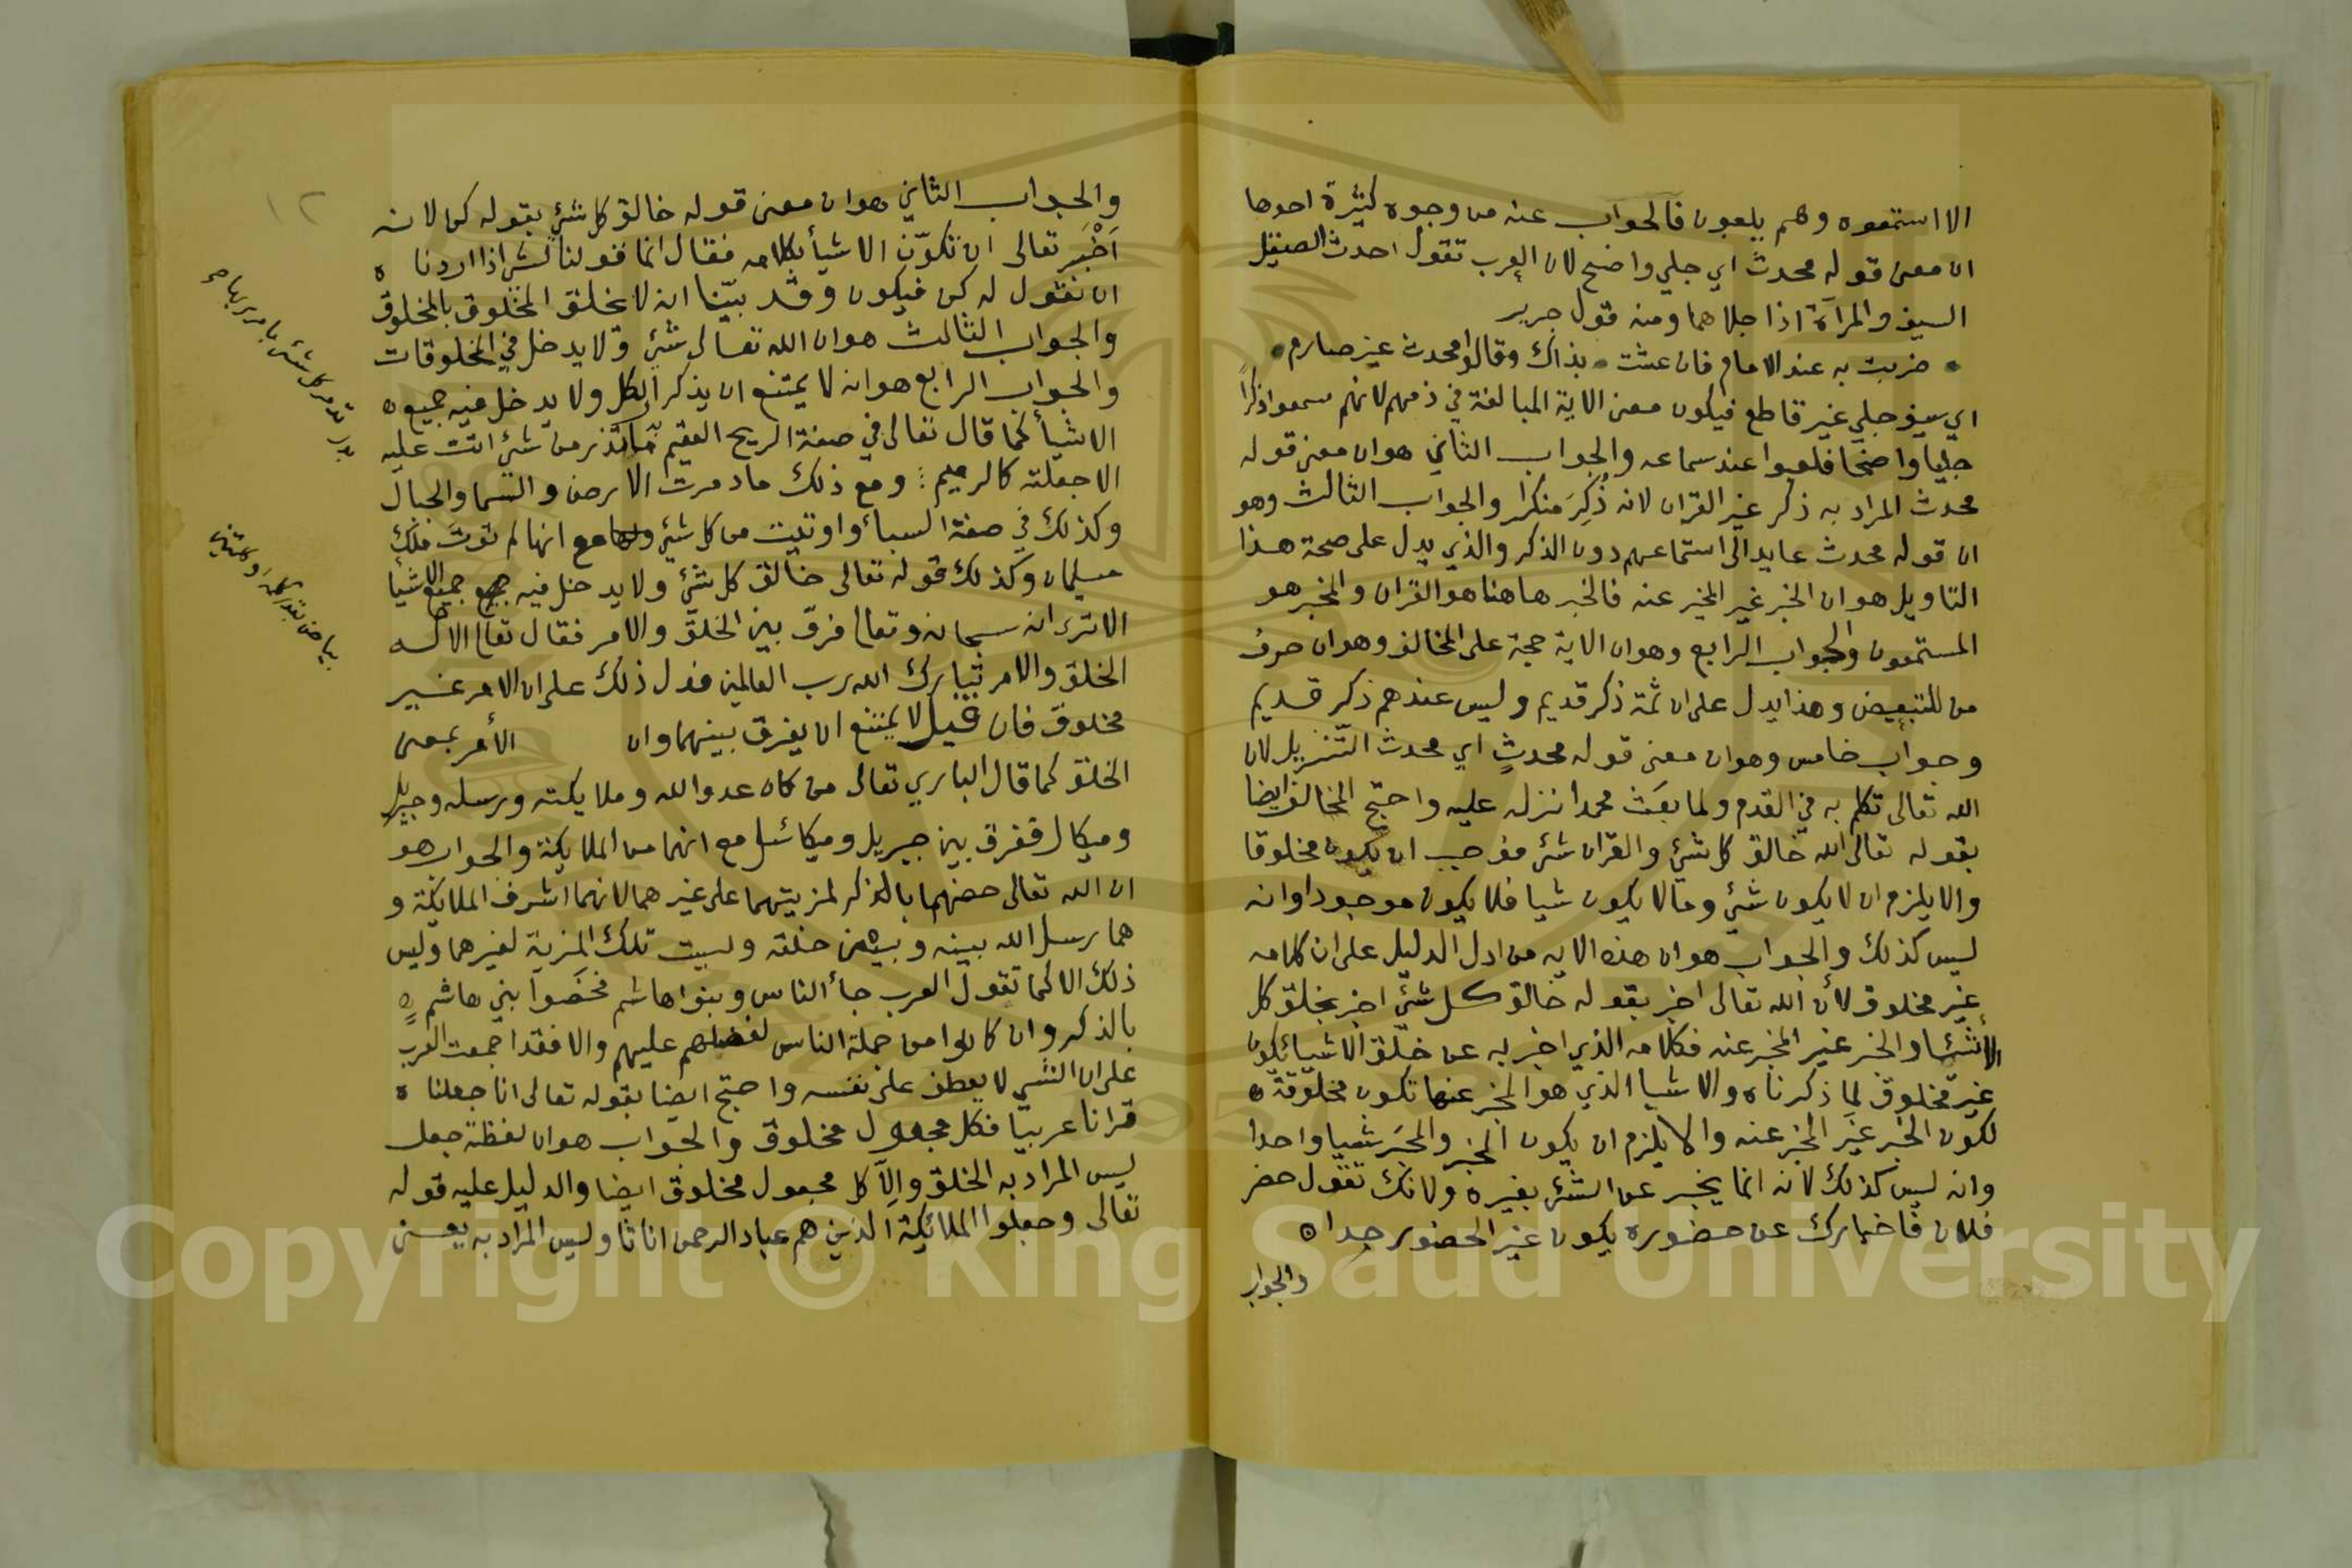 الا استمعوه وهم يلعبون فالجواب عنه من وجوه كثيرة احدها
ان معنى قوله محدث اي جلي واضح لان العرب تقول احدث الصيقل
السيف والمرآة اذا جلاهما ومنه قول جرير
ضربت به عند الامام فان عشت بذاك وقالوا محدث غير صارم
اي سيف جلي غير قاطع فيكون معنى الاية المبالغة في ذمهم لانهم سمعوا ذكرا
جليا واضحا فلعبوا عند سماعه والجواب الثاني هو ان معنى قوله
محدث المراد به ذكر غير القران لانه ذُكِرَ منكرا والجواب الثالث وهو
ان قوله محدث عايد الى استماعهم دون الذكر والذي يدل على صحة هذا
التاويل هو ان الخبر غير المخبر عنه فالخبر هاهنا هو القران والمخبر هو
المستمعون والجواب الرابع وهو ان الاية حجة على المخالف وهو ان حرف
من للتبعيض وهذا يدل على ان ثمة ذكر قديم وليس عندهم ذكر قديم
وجواب خامس وهو ان معنى قوله محدثٍ اي محدث التنزيل لان
الله تعالى تكلم به في القدم ولما بعث محمدا نزله عليه واحتج المخالف ايضا
بقوله تعالى الله خالق كل شيء والقران شئ فوجب ان يكون مخلوقا
والا يلزم ان لا يكون شيء وما لا يكون شيا فلا يكون موجودا وانه
ليس كذلك والجواب هو ان هذه الايه من ادل الدليل على ان كلامه
غير مخلوق لأن الله تعالى اخبر بقوله خالق كل شيء اخبر بخلق كل
الأشيا والخبر غير المخبر عنه فكلامه الذي اخبر به عن خلق الاشيا يكون
غير مخلوق لما ذكرناه والاشيا الذي هو المخبر عنها تكون مخلوقة ه
لكون الخبر غير المخبر عنه والا يلزم ان يكون الخبر والمخبر شيا واحدا
وانه ليس كذلك لانه انما يخبر عن الشئ بغيره ولانك تقول حضر
فلان فاخبارك عن حضوره يكون غير الحضور جدا ه
والجواب
١٢
والجواب الثاني هو ان معنى قوله خالق كل شيء بقوله كن لانه
اَخْبَر تعالى ان تكوّن الاشيأ بكلامه فقال انما قولنا لشئ اذا اردنا ه
ان نقول له كن فيكون وقد بيّنا انه لا يخلق المخلوق بالمخلوق
والجواب الثالث هو ان الله تعالى شئ ولا يدخل في المخلوقات
والجواب الرابع هو انه لا يمتنع ان يذكر الكل ولا يدخل فيه جميع ه
الاشيأ كما قال تعالى في صفة الريح العقيم ما تذر من شئ اتت عليه
الا جعلته كالرميم ومع ذلك ما دمرت الارض والسما والجبال
وكذلك في صفة السبأ واوتيت من كل شيء مع انها لم توت ملك
سليمان وكذلك قوله تعالى خالق كل شئ ولا يدخل فيه جميع الاشيا
الا ترى انه سبحانه وتعالى فرق بين الخلق والامر فقال تعالى الا له
الخلق والامر تبارك الله رب العالمين فدل ذلك على ان الامر غير
مخلوق فان قيل لا يمتنع ان يفرق بينهما وان الأمر بمعنى
الخلق كما قال الباري تعالى من كان عدوا لله وملايكته ورسله وجبريل
وميكال ففرق بين جبريل وميكائيل مع انهما من الملايكة والجواب هو
ان الله تعالى خصهما بالذكر لمزيتهما على غيرهما لانهما اشرف الملايكة و
هما رسل الله بينه وبين خلقه وليست تلك المزية لغيرهما وليس
ذلك الا كما تقول العرب جأ الناس وبنوا هاشم فخصوا بني هاشم ه
بالذكر وان كانوا من جملة الناس لفضلهم عليهم والا فقد اجمعت العرب
على ان الشي لا يعطف على نفسه واحتج ايضا بقوله تعالى انا جعلناه
قرانا عربيّا فكل مجعول مخلوق والجواب هو ان لفظة جعل
ليس المراد به الخلق والّا كل مجعول مخلوق ايضا والدليل عليه قوله
تعالى وجعلوا الملائكة الذين هم عباد الرحمن اناثا وليس المراد به يعني
تدمر كل شئ بامر ربها
Copyright © King Saud University
1957